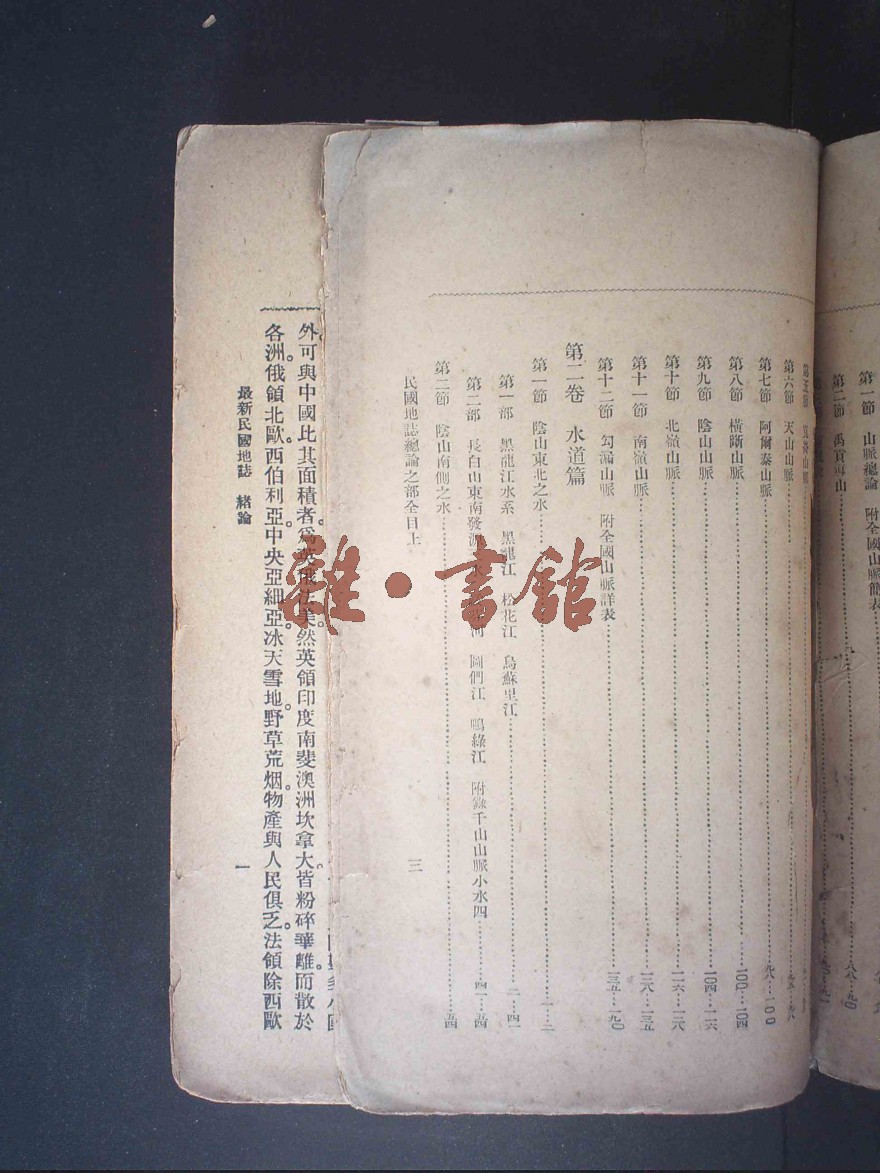 第一節 山脈總論 附全國山脈簡表
八八…九〇
第二節 禹貢導山
第六節 天山山脈
第七節 阿爾泰山脈 九八…一〇〇
第八節 橫斷山脈 一〇〇…一〇四
第九節 陰山山脈 一〇四…一一六
第十節 北嶺山脈 一一六…一二八
第十一節 南嶺山脈 一二八…一三五
第十二節 勾漏山脈 附全國山脈詳表 一三五…一九〇
第二卷 水道篇
第一節 陰山東北之水 一…二
第一部 黑龍江水系 黑龍江 松花江 烏蘇里江 二…四一
第二部 長白山東南發源 河 圖們江 鴨綠江 附錄千山山脈小水四 四一…五四
第二節 陰山南側之水 五四
民國地誌總論之部全目上 三
外可與中國比其面積者。爲英俄法美。然英領印度南斐澳洲坎拿大皆粉碎華離。而散於
各洲。俄領北歐。西伯利亞。中央亞細亞。冰天雪地。野草荒烟。物產與人民俱乏。法領除西歐
最新民國地誌 緒論 一
雜·書館